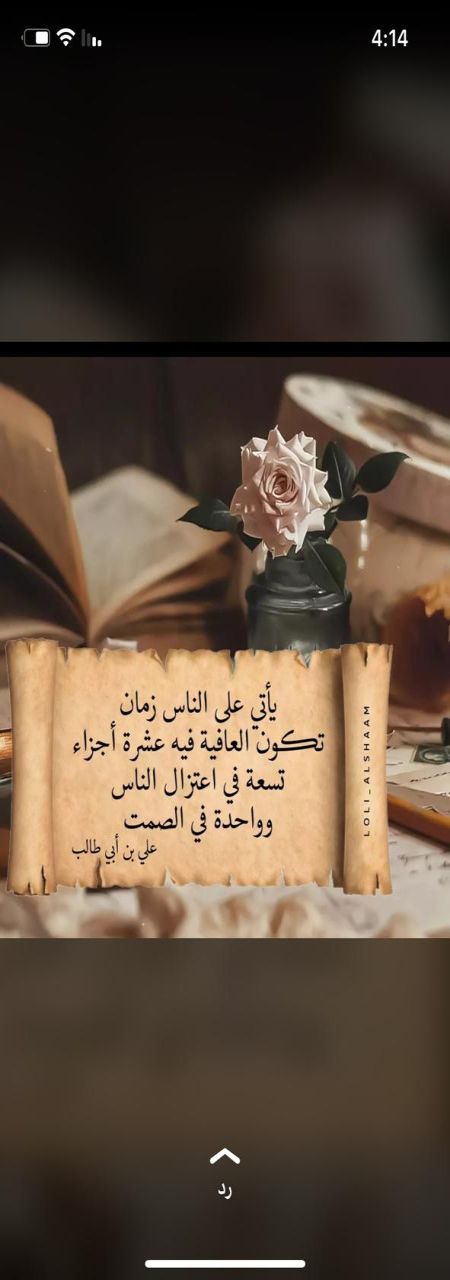 4:14
يأتي على الناس زمان
تكون العافية فيه عشرة أجزاء
تسعة في اعتزال الناس
وواحدة في الصمت
علي بن أبي طالب
LOLI_ALSHAAM
رد